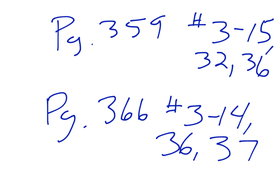 Pg. 359 #3-15
32, 36
Pg. 366 #3-14,
36, 37